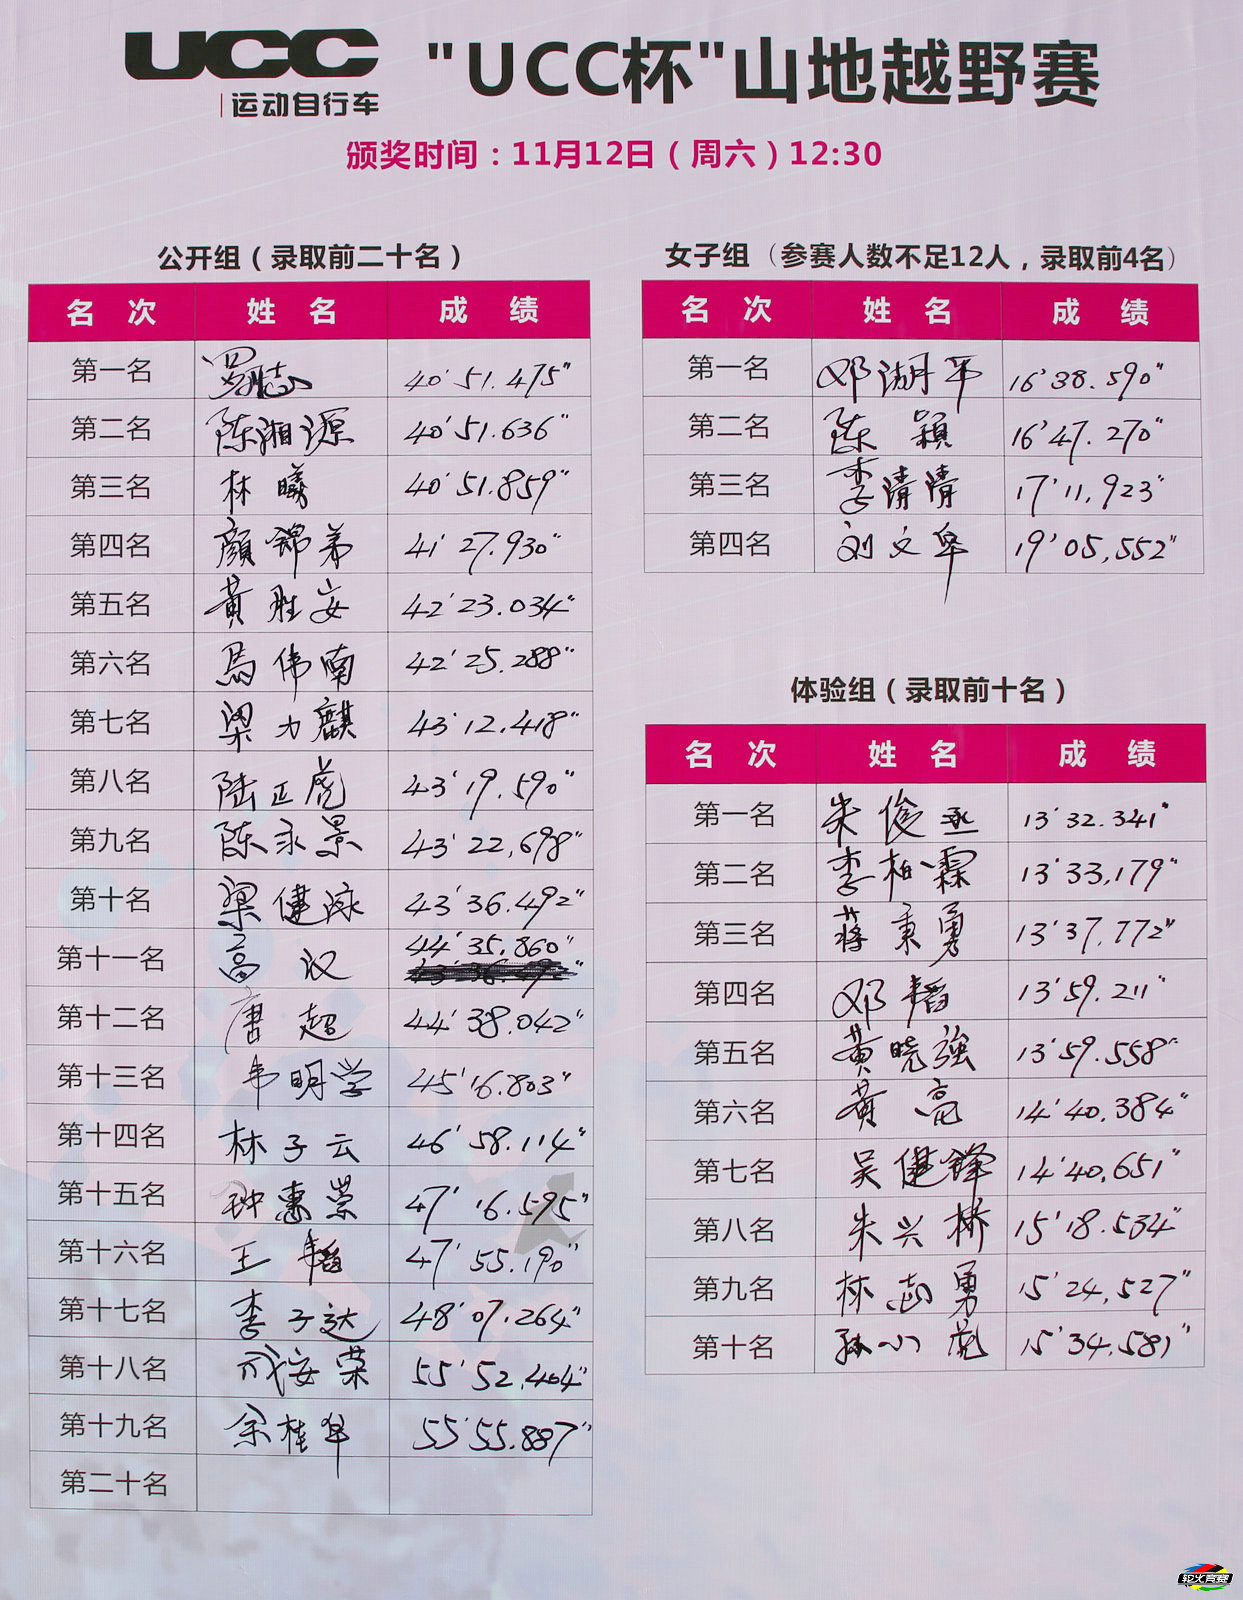 UCC
运动自行车
"UCC杯"山地越野赛
颁奖时间：11月12日（周六）12:30
公开组（录取前二十名）
名 次 姓 名 成 绩
第一名 罗志 40'51.475"
第二名 陈湘源 40'51.636"
第三名 林曦 40'51.859"
第四名 颜锦弟 41'27.930"
第五名 黄胜安 42'23.034"
第六名 马伟南 42'25.288"
第七名 梁力麒 43'12.418"
第八名 陆正虎 43'19.590"
第九名 陈永景 43'22,698"
第十名 梁健泳 43'36.492"
第十一名 高汉 44'35.860"
第十二名 唐超 44'38.042"
第十三名 韦明学 45'16.803"
第十四名 林子云 46'58.114"
第十五名 钟惠荣 47'16.595"
第十六名 王韬 47'55.190"
第十七名 李子达 48'07.264"
第十八名 安荣 55'52.404"
第十九名 余桂华 55'55.887"
第二十名
女子组（参赛人数不足12人，录取前4名）
名 次 姓 名 成 绩
第一名 邓湖平 16'38.590"
第二名 陈颖 16'47.270"
第三名 李清清 17'11,923"
第四名 刘文 19'05,552"
体验组（录取前十名）
名 次 姓 名 成 绩
第一名 朱俊丞 13'32.341"
第二名 李柏霖 13'33,179"
第三名 蒋秉勇 13'37.772"
第四名 邓韬 13'59.211"
第五名 黄晓強 13'59.558"
第六名 黄亮 14'40.384"
第七名 吴健锋 14'40,651"
第八名 朱兴桥 15'18.534"
第九名 林志勇 15'24,527"
第十名 孙小虎 15'34.581"
轮火竞赛